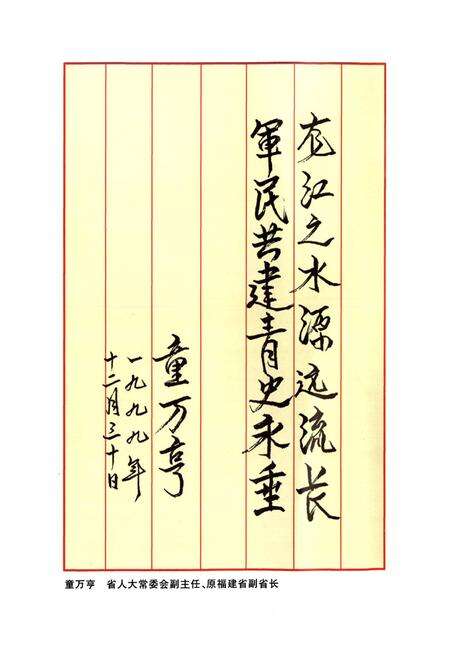 龙江之水源远流长
軍民共建青史永垂
童万亨
一九九九年
十二月三十日
童万亨 省人大常委会副主任、原福建省副省长